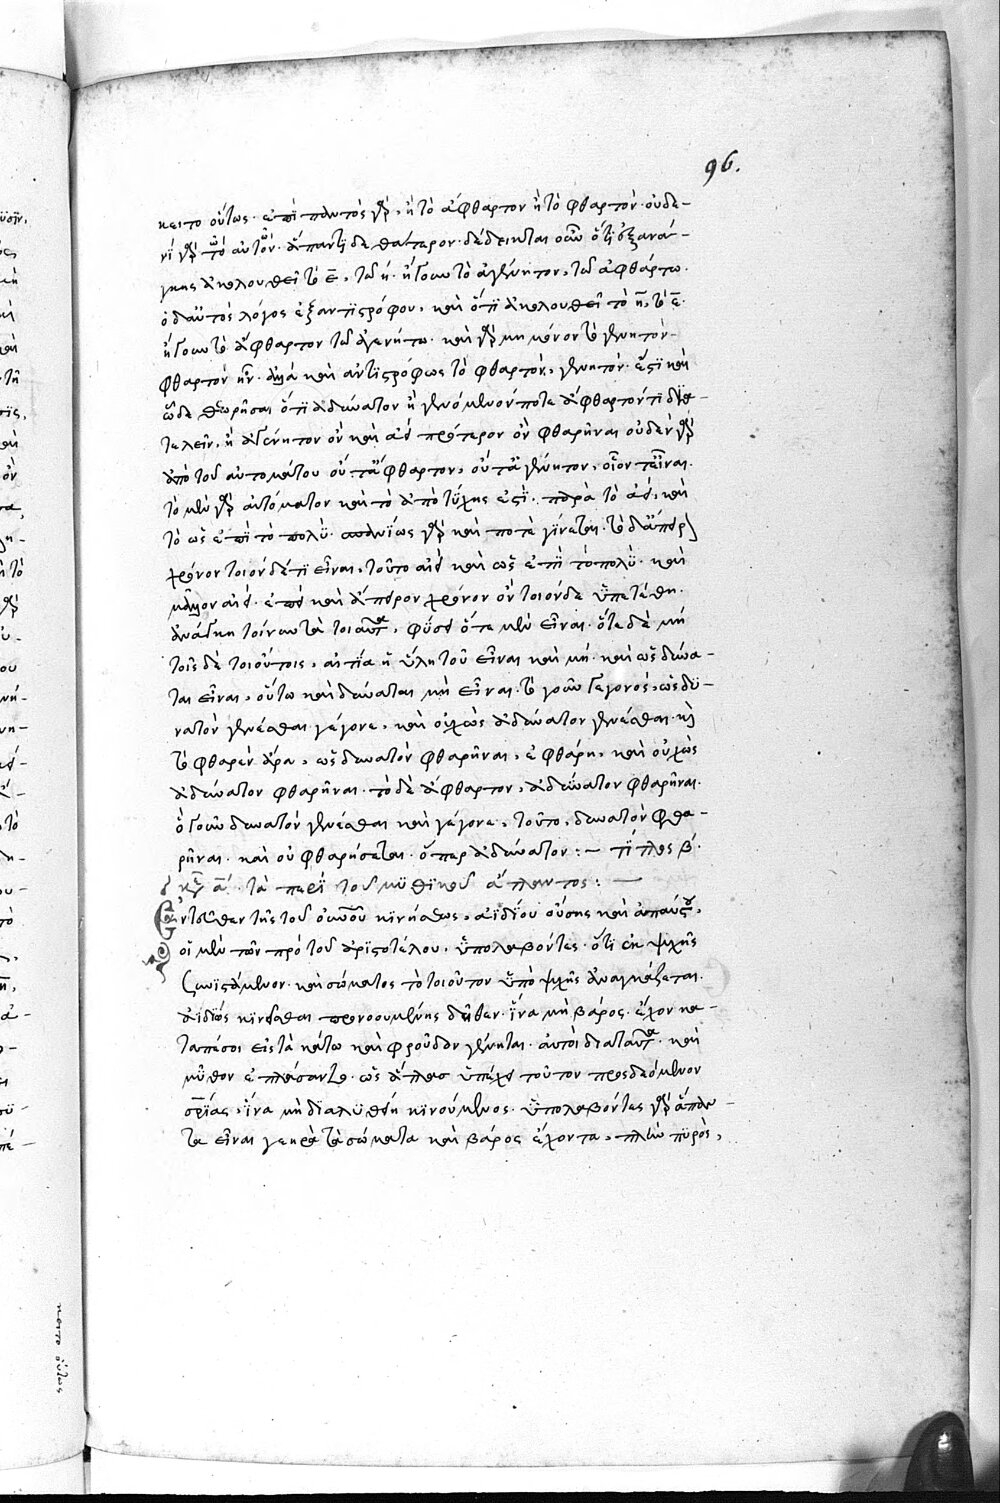 96.
κειτο οὕτως· ἐπὶ παντὸς γὰρ, ἢ τὸ ἄφθαρτον ἢ τὸ φθαρτόν· οὐδε-
νὶ γὰρ τῶν αὐτῶν· ἅπαντι δὲ θάτερον· δέδεικται οὖν ὅτι ἐξ ἀνά-
γκης ἀκολουθεῖ τὸ ε̄, τῷ η̄· ἤγουν τὸ ἀγένητον, τῷ ἀφθάρτῳ·
ὁ δ' αὐτὸς λόγος ἐξ ἀντιστρόφου, καὶ ὅτι ἀκολουθεῖ τὸ η̄, τῷ ε̄·
ἤγουν τὸ ἄφθαρτον τῷ ἀγενήτῳ· καὶ γὰρ μὴ μόνον τὸ γενητὸν
φθαρτὸν ἦν· ἀλλὰ καὶ ἀντιστρόφως τὸ φθαρτὸν, γενητόν· ἔστι καὶ
ὧδε θεωρῆσαι ὅτι ἀδύνατον ἢ γενόμενόν ποτε ἄφθαρτόν τι δια-
τελεῖν, ἢ ἀγένητον ὂν καὶ ἀεὶ πρότερον ὂν φθαρῆναι οὐδὲν γὰρ
ἀπὸ τοῦ αὐτομάτου οὔτ' ἄφθαρτον, οὔτ' ἀγένητον, οἷόν τ' εἶναι·
τὸ μὲν γὰρ αὐτόματον καὶ τὸ ἀπὸ τύχης ἐστὶ παρὰ τὸ ἀεὶ, καὶ
τὸ ὡς ἐπὶ τὸ πολύ· σπανίως γὰρ καὶ ποτὲ γίνεται· τὸ δ' ἄπειρον
χρόνον τοιόνδέ τι εἶναι, τοῦτο αἰεὶ καὶ ὡς ἐπὶ τὸ πολύ· καὶ
μᾶλλον αἰεί· ἐπεὶ καὶ ἄπειρον χρόνον ὂν τοιόνδε ὑπετέθη·
ἀνάγκη τοίνυν τὰ τοιαῦτα, φύσει ὅτε μὲν εἶναι· ὅτε δὲ μή
τοῖς δὲ τοιούτοις, αἰτία ἡ ὕλη τοῦ εἶναι καὶ μή· καὶ ὡς δύνα-
ται εἶναι, οὕτω καὶ δύναται μὴ εἶναι· τὸ γοῦν γεγονός, ὡς δυ-
νατὸν γενέσθαι γέγονε, καὶ οὐχ ὡς ἀδύνατον γενέσθαι· καὶ
τὸ φθαρὲν ἄρα, ὡς δυνατὸν φθαρῆναι, ἐφθάρη, καὶ οὐχ ὡς
ἀδύνατον φθαρῆναι· τὸ δὲ ἄφθαρτον, ἀδύνατον φθαρῆναι·
ὃ γοῦν δυνατὸν γενέσθαι καὶ γέγονε, τοῦτο, δυνατὸν φθα-
ρῆναι· καὶ οὐ φθαρήσεται· ὅπερ ἀδύνατον :—
κεφ. ᾱ. τὰ περὶ τοῦ μυθικοῦ ἄτλαντος : —
ἐντεῦθεν τῆς τοῦ οὐνοῦ κινήσεως, ἀϊδίου οὔσης καὶ ἀπαύστου,
οἱ μὲν τῶν πρὸ τοῦ ἀριστοτέλου, ὑπολαβόντες ὅτι ἐκ ψυχῆς
συνιστάμενον καὶ σώματος τὸ τοιοῦτον ὑπὸ ψυχῆς ἀναγκάζεται
ἀϊδίως κινεῖσθαι προνοουμένης δῆθεν· ἵνα μὴ βάρος ἔχον κα-
ταπέσοι εἰς τὰ κάτω καὶ φροῦδον γένηται· αὐτοὶ διὰ ταῦτα καὶ
μῦθον ἐπλάσαντο· ὡς ἄτλασ ὑπέχει τοῦτον προσδεόμενον
στερεᾶς, ἵνα μὴ διαλυθῇ κινούμενος· ὑπολαβόντες γὰρ ἅπαν-
τα εἶναι γεηρὰ τὰ σώματα καὶ βάρος ἔχοντα, πλὴν πυρὸς,
κειτο οὕτως